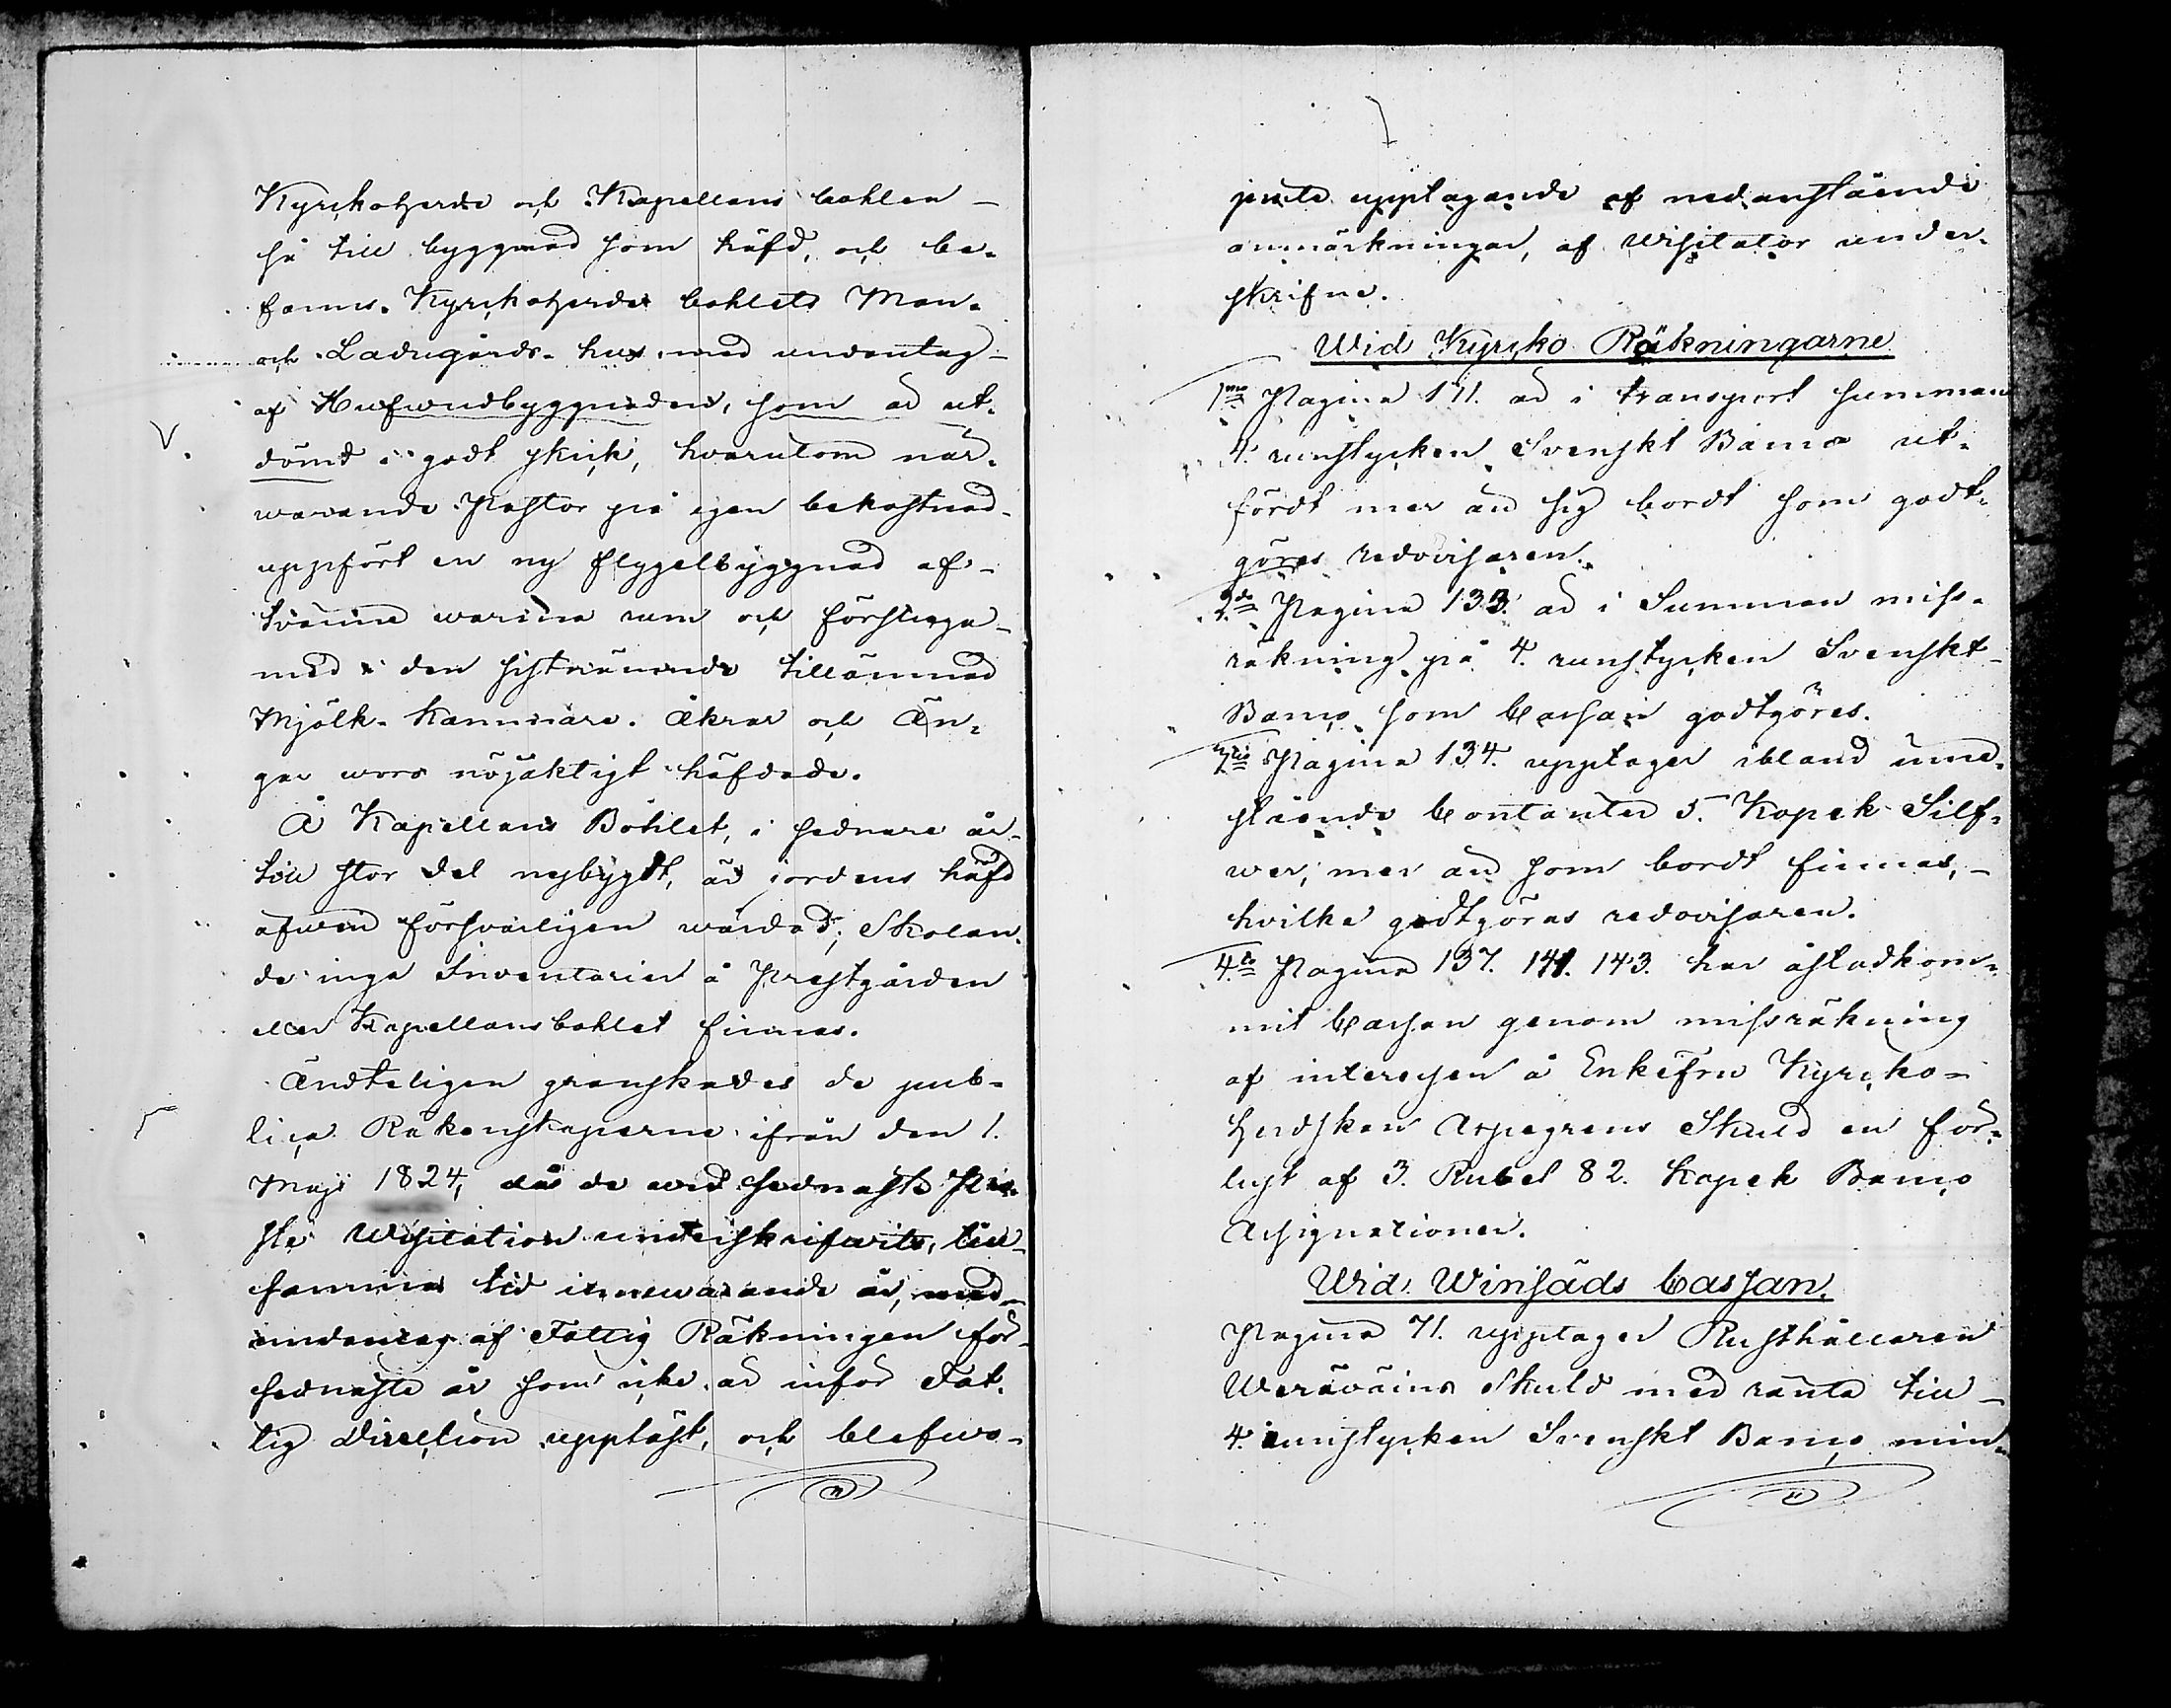 Kyrckoherde och Kapellans bohlen –
så till byggnad som häfd, och be-
fanns Kyrckoherde bohlets Man-
och Ladugårds- hus med undantag –
af Hufwudbyggnaden, som är ut-
dömd i godt skick, hvarutom när-
warande Pastor på egen bekostnad
uppfört en ny flygelbyggnad af –
tvänne warma rum och förstuga –
med i den sistnämnde tillämnad
Mjölk-kammare. Åkrar och Än-
gar woro nöjaktigt häfdade.
Å Kapellans Bohlet, i sednare år
till stor del nybygdt, är jordens häfd
äfwen försvarligen wårdad; Skolan-
de inga Inventarier å Prestgården
eller Kapellansbohlet finnas.
Ändteligen granskades de pub-
lica Räkenskaperne ifrån den 1.
Maji 1824, då de wid sednaste Pro-
sts Visitation underskrifwits, till
samma tid innewarande år, med
undantag af Fattig Räkningen för
sednaste år som icke är inför Fat-
tig Direction uppläst, och blefwo –
juste upptagande af nedanstående
anmärkningar, af Wisitator under-
skrifne.
Wid Kyrcko Räkningarne
1mo Pagina 111. är i transport summan
4. runstycken Svenskt Banco ut-
fördt mer än sig bordt som godt-
göres redovisaren.
2do Pagina 133. är i Summan miss-
räkning på 4. runstycken Svenskt
Banco som Cassan godtgöres.
3tio Pagina 134. upptages ibland inne-
stående Contanter 5. Kopek Silf-
wer, mer än som bordt finnas, –
hvilka godtgöras redovisaren.
4to Pagina 137. 141. 143. har åstadkom-
mit Cassan genom missräkning
af interessen å Enkefru Kyrcko-
herdskan Aspegrens Skuld en för-
lust af 3. Rubel 82. Kopek Banco
Assignationer.
Wid Winsäds Cassan.
Pagina 71. upptages Rusthållaren
Skuld med ränta till –
4. runstycken Svenskt Banco min-